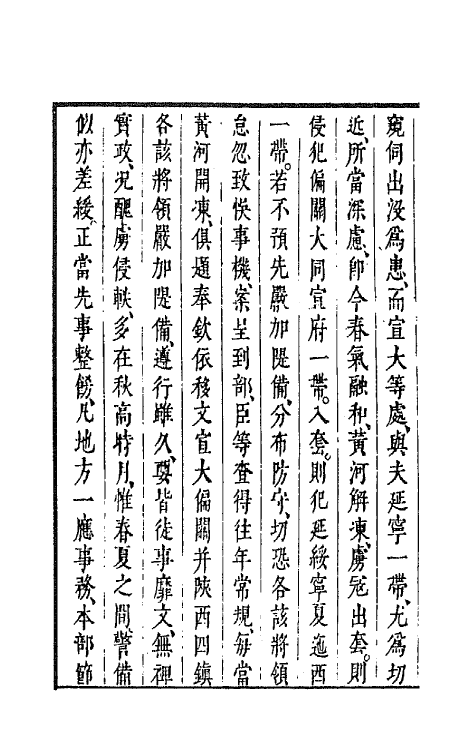 窺伺出沒爲患、而宣大等處、與夫延寧一帶、尤爲切
近、所當深慮、卽今春氣融和、黃河解凍、虜冦出套。則
侵犯偏關大同宣府一帶。入套。則犯延綏寧夏迤西
一帶。若不預先嚴加隄備、分布防守、切恐各該將領
怠忽致悞事機、案呈到部、臣等查得往年常規、每當
黃河開凍、俱題奉欽依移文宣大偏關并陜西四鎮
各該將領嚴加隄備、遵行雖久、要皆徒事靡文、無裨
實政、况醜虜侵軼、多在秋高時月、惟春夏之間警備
似亦差緩、正當先事整飭、凡地方一應事務、本部節